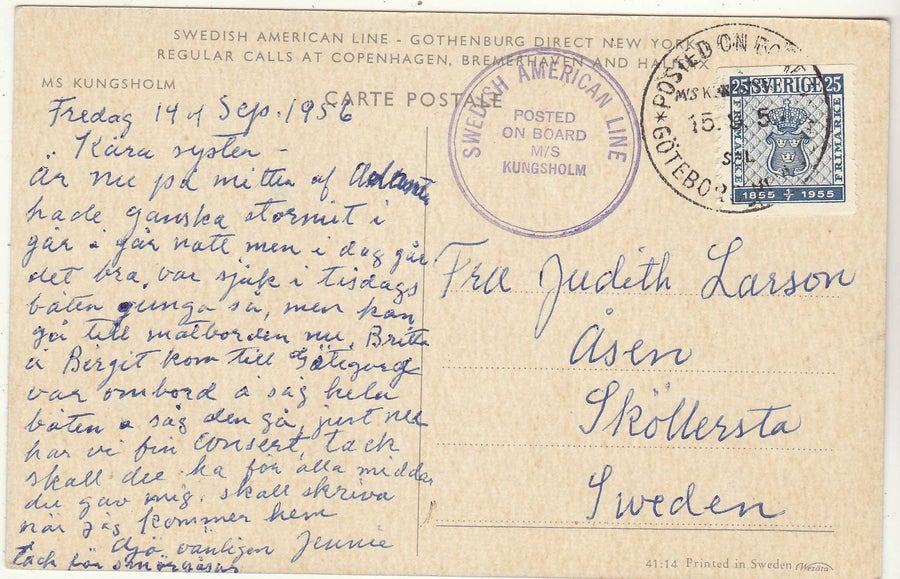 SWEDISH AMERICAN LINE - GOTHENBURG DIRECT NEW YORK
REGULAR CALLS AT COPENHAGEN, BREMERHAVEN AND HALIFAX
MS KUNGSHOLM
CARTE POSTALE
SWEDISH AMERICAN LINE
POSTED
ON BOARD
M/S
KUNGSHOLM
POSTED ON BO
M/S K
15.
GÖTEBO
25 SVERIGE 25
FRIMÄRKE
1855 1/7 1955
Fredag 14 Sep. 1956
Kära syster -
Är nu på mitten af
hade ganska stormit i
går å går natt men i dag går
det bra, var sjuk i tisdags
båten gunga så, men kan
gå till matborden nu. Britta
å Bergit kom till
var ombord å såg hela
båten å såg den gå, just nu
har vi fin consert, tack
skall du ha för alla middar
du gav mig. skall skriva
när jag kommer hem
Ajö vänligen Jennie
tack för
Fru Judith Larson
Åsen
Sköllersta
Sweden
41:14 Printed in Sweden